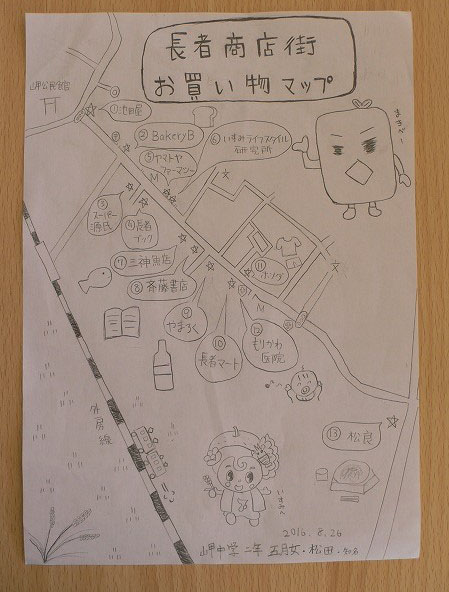 長者商店街
お買い物マップ
岬公民館
①池田屋
②BakeryB
⑤ヤマトヤ
ファーマシー
⑥いすみライフスタイル
研究所
③スーパー
源氏
④長者
ブック
M
文
⑦三神魚店
⑧斉藤書店
⑨
やまろく
⑩
長者マート
⑪
⑫
もりかわ
医院
M
文
⑬松良
外房線
2016.8.26
岬中学二年 五月女・松田・